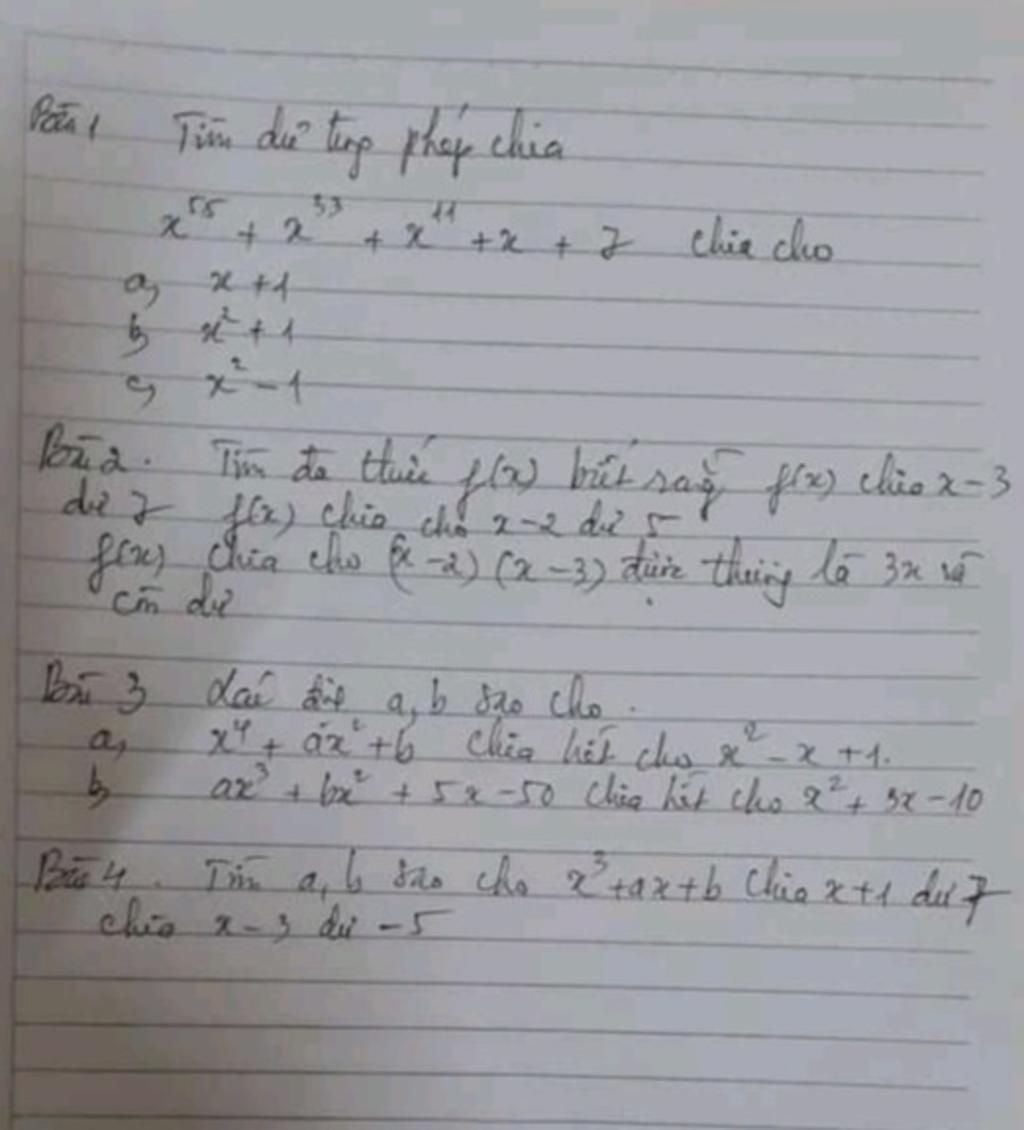 Bài 1 Tìm dư trong phép chia
x⁵⁵ + x³³ + x¹¹ + x + 7 chia cho
a, x + 1
b, x² + 1
c, x² - 1
Bài 2. Tìm đa thức f(x) biết rằng f(x) chia x - 3
dư 7 f(x) chia cho x - 2 dư 5
f(x) chia cho (x - 2) (x - 3) được thương là 3x và
còn dư
Bài 3 a, b sao cho.
a, x⁴ + ax² + b chia hết cho x² - x + 1.
b, ax³ + bx² + 5x - 50 chia hết cho x² + 3x - 10
Bài 4. Tìm a, b sao cho x³ + ax + b chia x + 1 dư 7
chia x - 3 dư -5